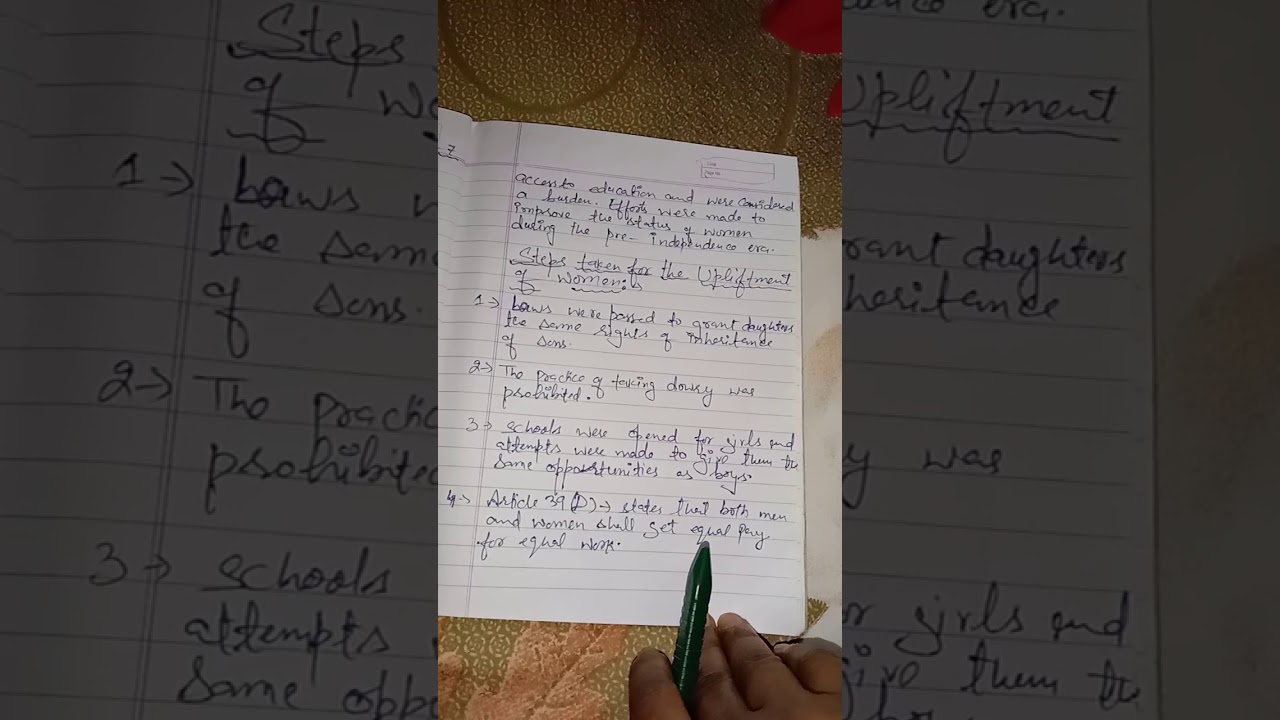 7
access to education and were considered
a burden. Efforts were made to
improve the status of women
during the pre-independence era.
Steps taken for the Upliftment
of women:
1→ Laws were passed to grant daughters
the same rights of inheritance
of sons.
2→ The practice of taking dowry was
prohibited.
3→ schools were opened for girls and
attempts were made to give them the
same opportunities as boys.
4→ Article 39(D)→ states that both men
and women shall get equal pay
for equal work.